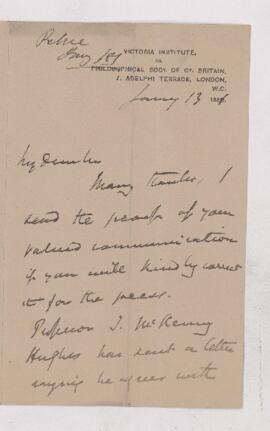 Petrie
VICTORIA INSTITUTE,
OR
PHILOSOPHICAL SOCY. OF GT. BRITAIN,
7, ADELPHI TERRACE, LONDON,
W.C.
13
My Dear Sir
Many thanks, I
send the proof of your
valued communication
if you will kindly correct
it for the press.
Professor T. McKenny
Hughes has sent a letter
saying he agrees with